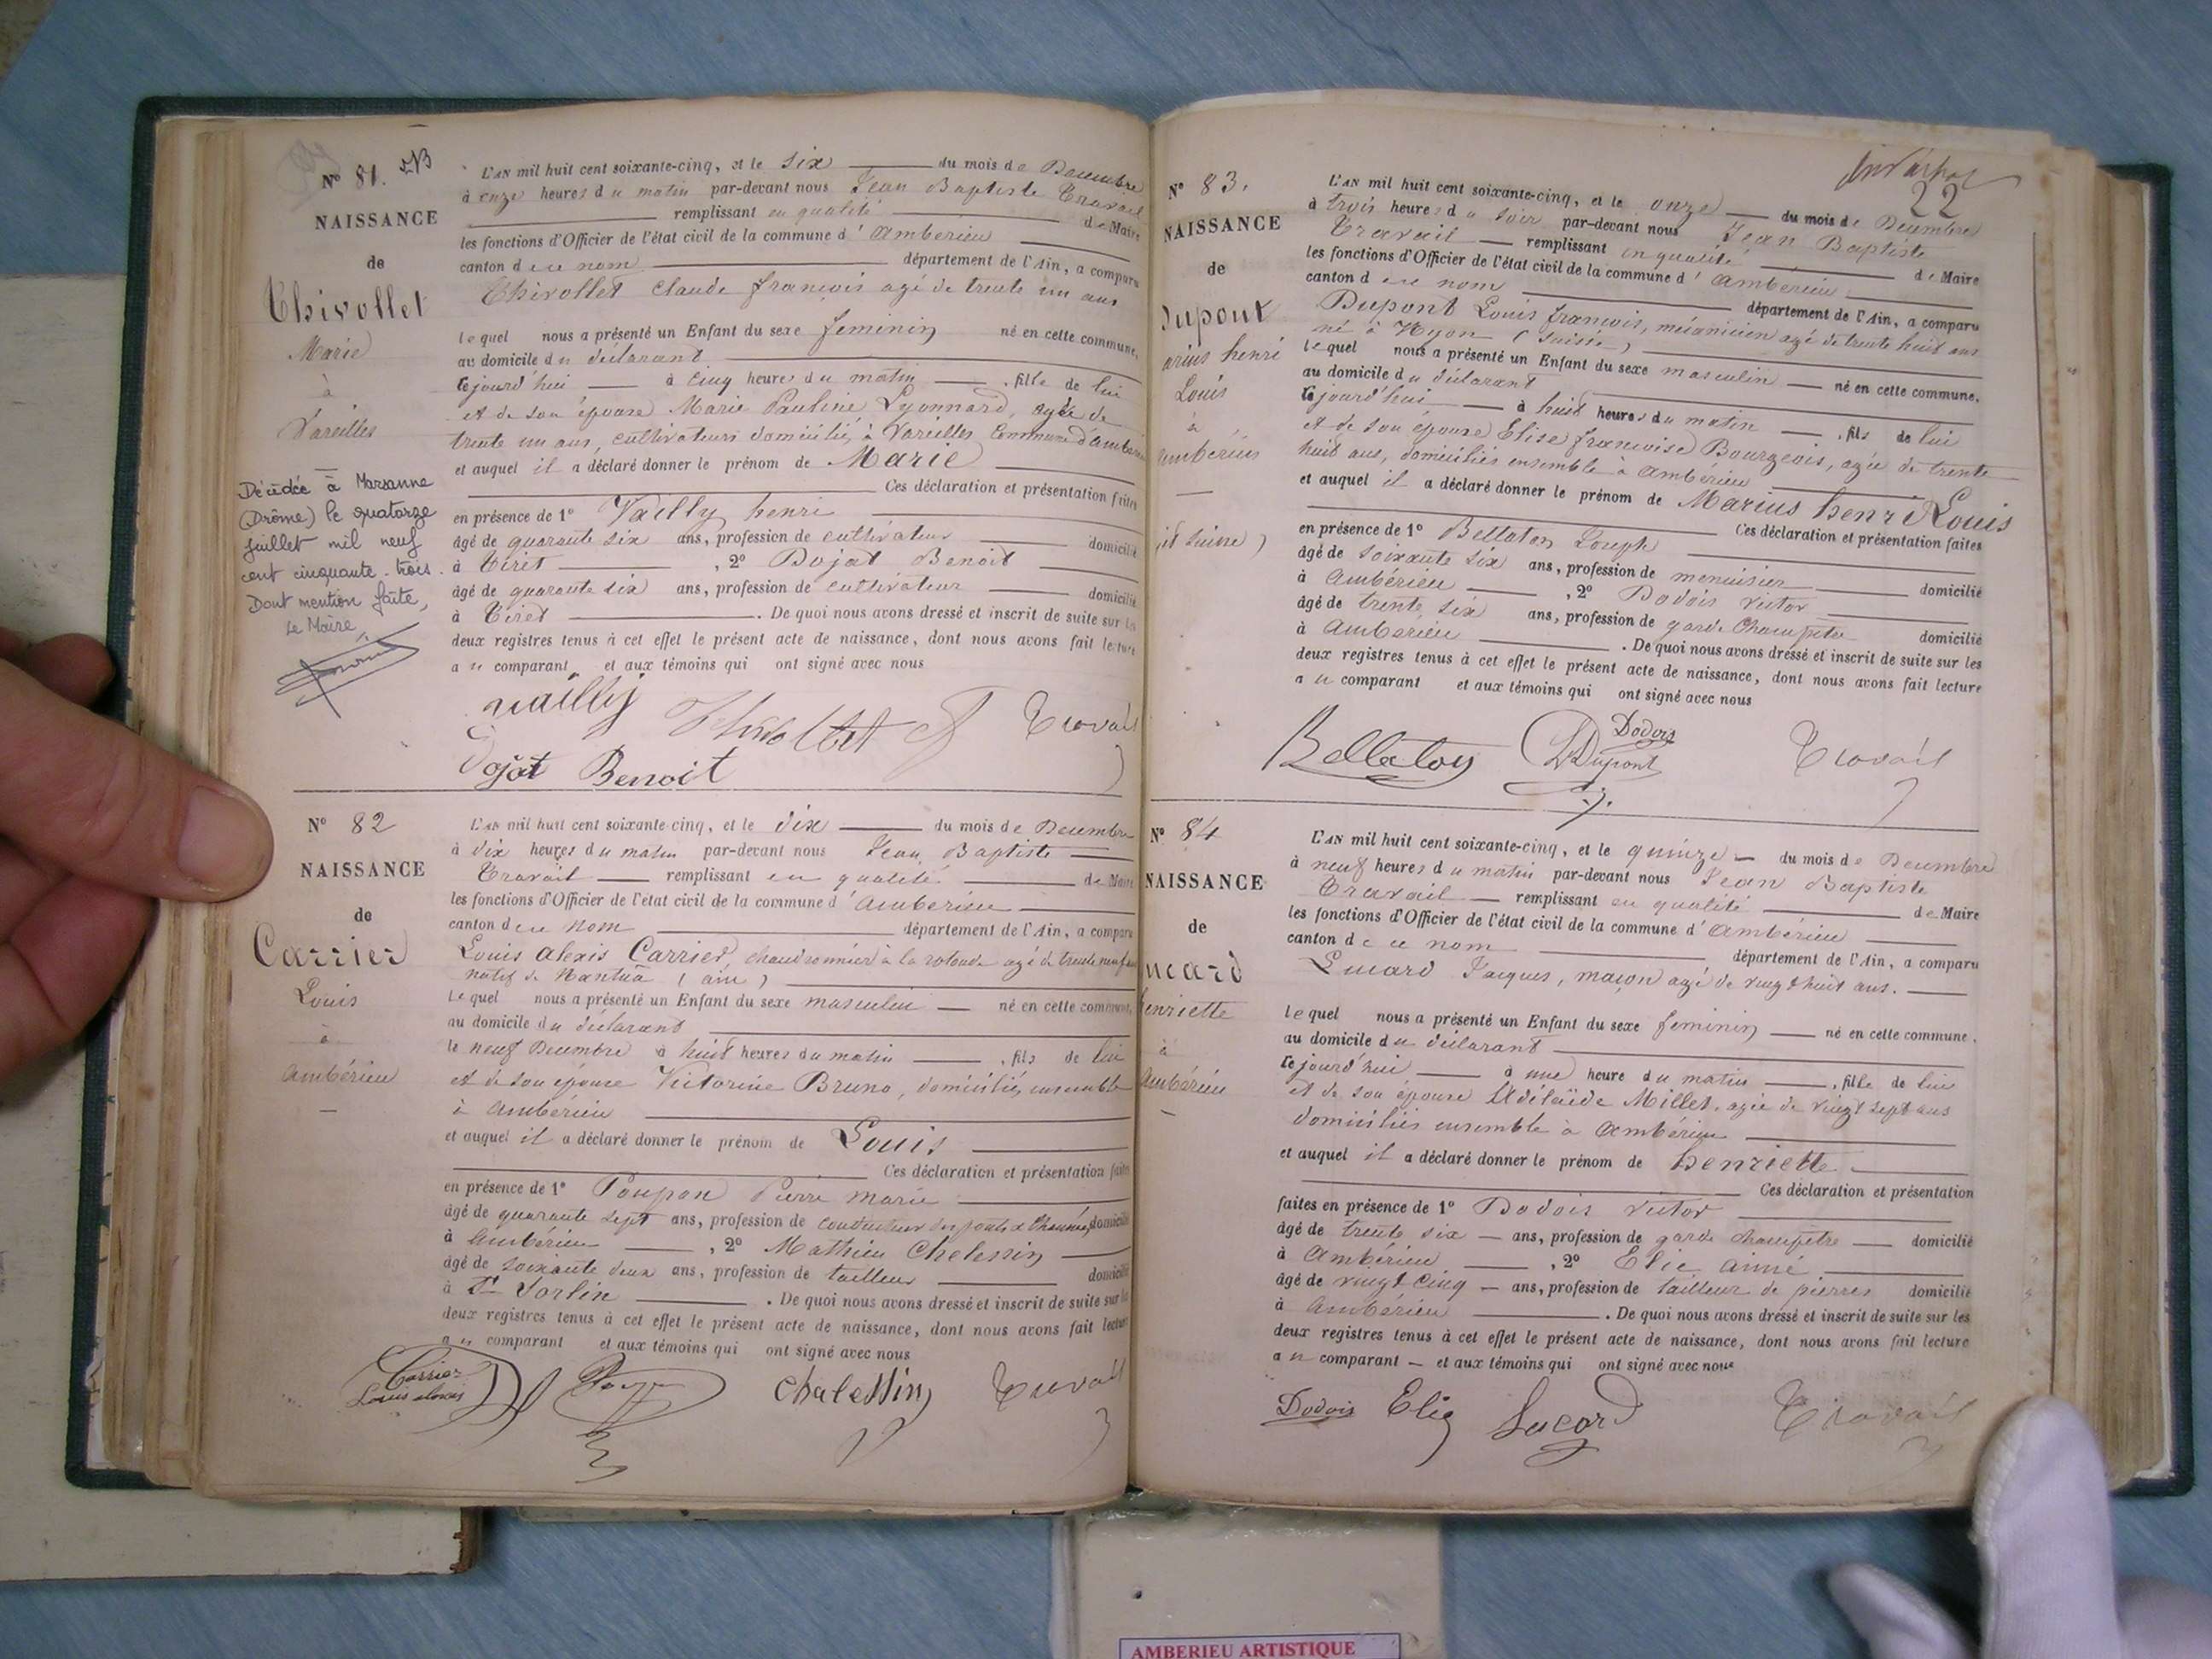 Nº 81. 2B
NAISSANCE
de
Thivollet
Marie
à
Vareilles
Décédée à Marsanne
(Drôme) le quatorze
juillet mil neuf
cent cinquante-trois.
Dont mention faite,
Le Maire,
L'AN mil huit cent soixante-cinq, et le six du mois de Décembre
à onze heures du matin par-devant nous Jean Baptiste Travail
remplissant en qualité de Maire
les fonctions d'Officier de l'état civil de la commune d'Ambérieu
canton de ce nom département de l'Ain, a comparu
Thivollet Claude françois agé de trente un ans
lequel nous a présenté un Enfant du sexe feminin né en cette commune,
au domicile du déclarant
cejourd'hui à cinq heures du matin, fille de lui
et de son épouse Marie Pauline Lyonnard, agée de
trente un ans, cultivateurs domiciliés à Vareilles Commune d'Ambérieu
et auquel il a déclaré donner le prénom de Marie
Ces déclaration et présentation faites
en présence de 1º Vailly henri
âgé de quarante six ans, profession de cultivateur domicilié
à Tiret, 2º Dojat Benoit
âgé de quarante six ans, profession de cultivateur domicilié
à Tiret. De quoi nous avons dressé et inscrit de suite sur les
deux registres tenus à cet effet le présent acte de naissance, dont nous avons fait lecture
au comparant et aux témoins qui ont signé avec nous
Vailly Thivollet Travail
Dojat Benoit
Nº 82
NAISSANCE
de
Carrier
Louis
à
Ambérieu
L'AN mil huit cent soixante-cinq, et le dix du mois de Décembre
à dix heures du matin par-devant nous Jean Baptiste
Travail remplissant en qualité de Maire
les fonctions d'Officier de l'état civil de la commune d'Ambérieu
canton de ce nom département de l'Ain, a comparu
Louis alexis Carrier, chaudronnier à la rotonde agé de trente neuf ans
natif de Nantua (ain)
lequel nous a présenté un Enfant du sexe masculin né en cette commune,
au domicile du déclarant
le neuf Décembre à huit heures du matin, fils de lui
et de son épouse Victorine Bruno, domiciliés ensemble
à Ambérieu
et auquel il a déclaré donner le prénom de Louis
Ces déclaration et présentation faites
en présence de 1º Poupon Pierre Marie
âgé de quarante sept ans, profession de conducteur des ponts & Chaussées, domicilié
à Ambérieu, 2º Mathieu Chelessin
âgé de soixante deux ans, profession de tailleur domicilié
à St Sorlin. De quoi nous avons dressé et inscrit de suite sur les
deux registres tenus à cet effet le présent acte de naissance, dont nous avons fait lecture
au comparant et aux témoins qui ont signé avec nous
Carrier
Louis alexis chalessin Travail
22
Nº 83.
NAISSANCE
de
Dupont
arius henri
Louis
à
Ambérieu
L'AN mil huit cent soixante-cinq, et le onze du mois de Décembre
à trois heures du soir par-devant nous Jean Baptiste
Travail remplissant en qualité de Maire
les fonctions d'Officier de l'état civil de la commune d'Ambérieu
canton de ce nom département de l'Ain, a comparu
Dupont Louis françois, mécanicien agé de trente huit ans
né à Nyon (Suisse)
lequel nous a présenté un Enfant du sexe masculin né en cette commune,
au domicile du déclarant
cejourd'hui à huit heures du matin, fils de lui
et de son épouse Elise françoise Bourgeois, agée de trente
huit ans, domiciliés ensemble à Ambérieu
et auquel il a déclaré donner le prénom de Marius henri Louis
Ces déclaration et présentation faites
en présence de 1º Bellaton Joseph
âgé de soixante six ans, profession de menuisier domicilié
à Ambérieu, 2º Dodois victor
âgé de trente six ans, profession de garde Champêtre domicilié
à Ambérieu. De quoi nous avons dressé et inscrit de suite sur les
deux registres tenus à cet effet le présent acte de naissance, dont nous avons fait lecture
au comparant et aux témoins qui ont signé avec nous
Bellaton Dodois Travail
LDupont
Nº 84
NAISSANCE
de
ucard
henriette
à
Ambérieu
L'AN mil huit cent soixante-cinq, et le quinze du mois de Décembre
à neuf heures du matin par-devant nous Jean Baptiste
Travail remplissant en qualité de Maire
les fonctions d'Officier de l'état civil de la commune d'Ambérieu
canton de ce nom département de l'Ain, a comparu
Lucard Jacques, maçon agé de vingt huit ans.
lequel nous a présenté un Enfant du sexe feminin né en cette commune.
au domicile du déclarant
cejourd'hui à une heure du matin, fille de lui
et de son épouse Adélaïde Millet, agée de vingt sept ans
domiciliés ensemble à Ambérieu
et auquel il a déclaré donner le prénom de henriette
Ces déclaration et présentation
faites en présence de 1º Dodois victor
âgé de trente six ans, profession de garde champêtre domicilié
à Ambérieu, 2º Elie aimé
âgé de vingt cinq ans, profession de tailleur de pierres domicilié
à Ambérieu. De quoi nous avons dressé et inscrit de suite sur les
deux registres tenus à cet effet le présent acte de naissance, dont nous avons fait lecture
au comparant et aux témoins qui ont signé avec nous
Dodois Elie Lucard Travail
AMBERIEU ARTISTIQUE